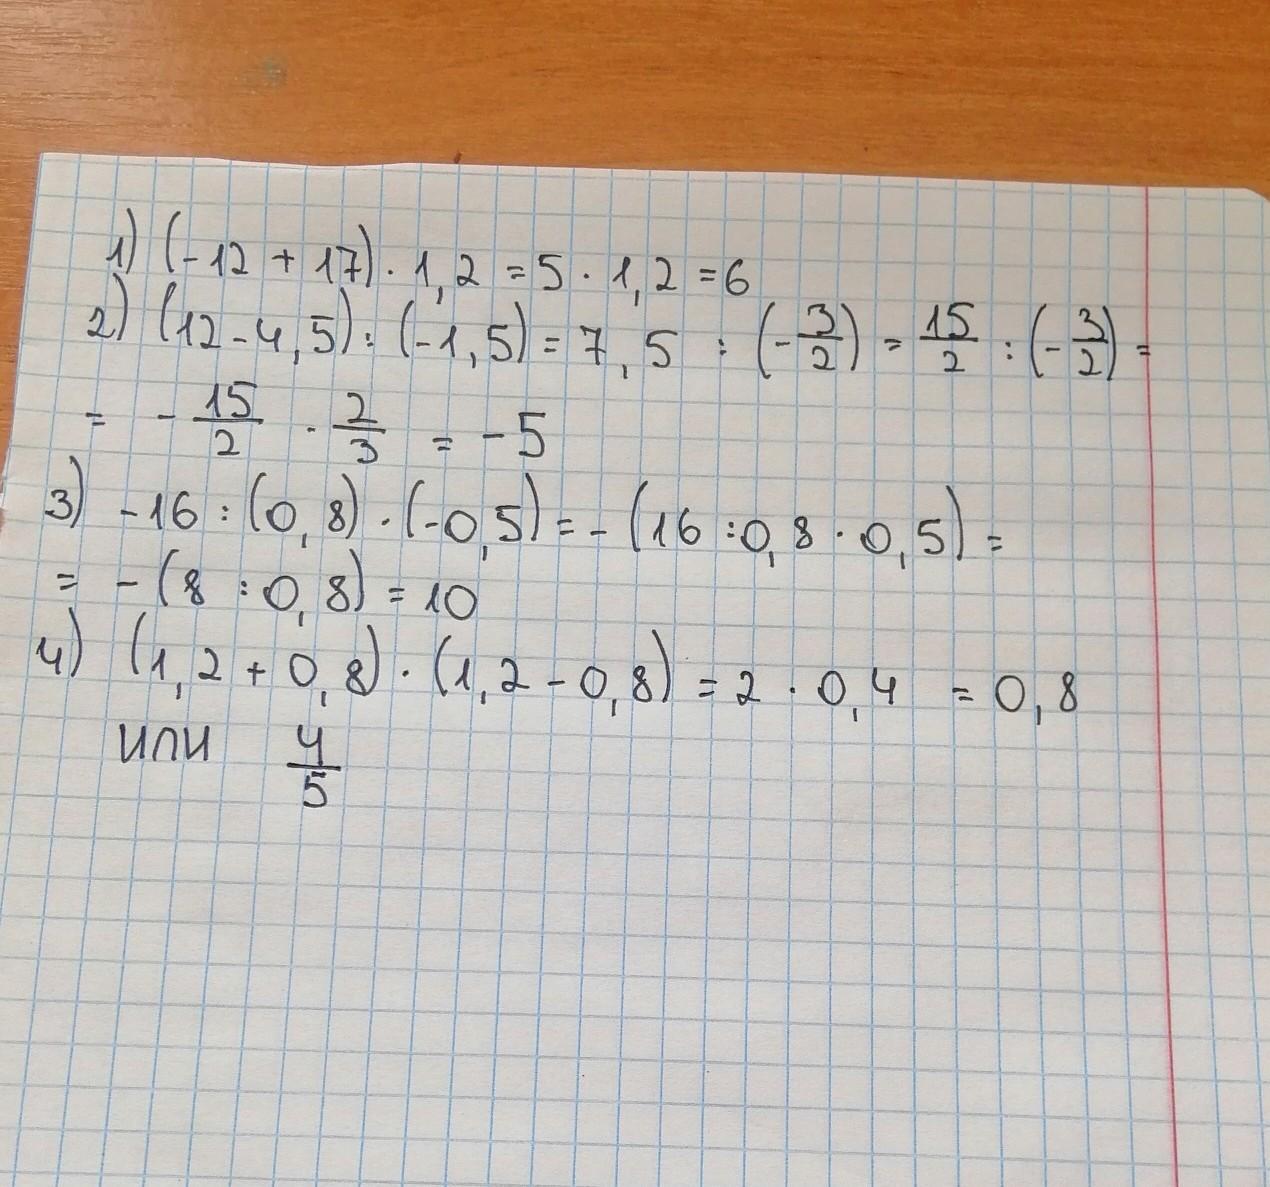 1) (-12 + 17) · 1,2 = 5 · 1,2 = 6
2) (12 - 4,5) : (-1,5) = 7,5 : (-3/2) = 15/2 : (-3/2) =
= - 15/2 · 2/3 = -5
3) -16 : (0,8) · (-0,5) = - (16 : 0,8 · 0,5) =
= - (8 : 0,8) = 10
4) (1,2 + 0,8) · (1,2 - 0,8) = 2 · 0,4 = 0,8
или 4/5